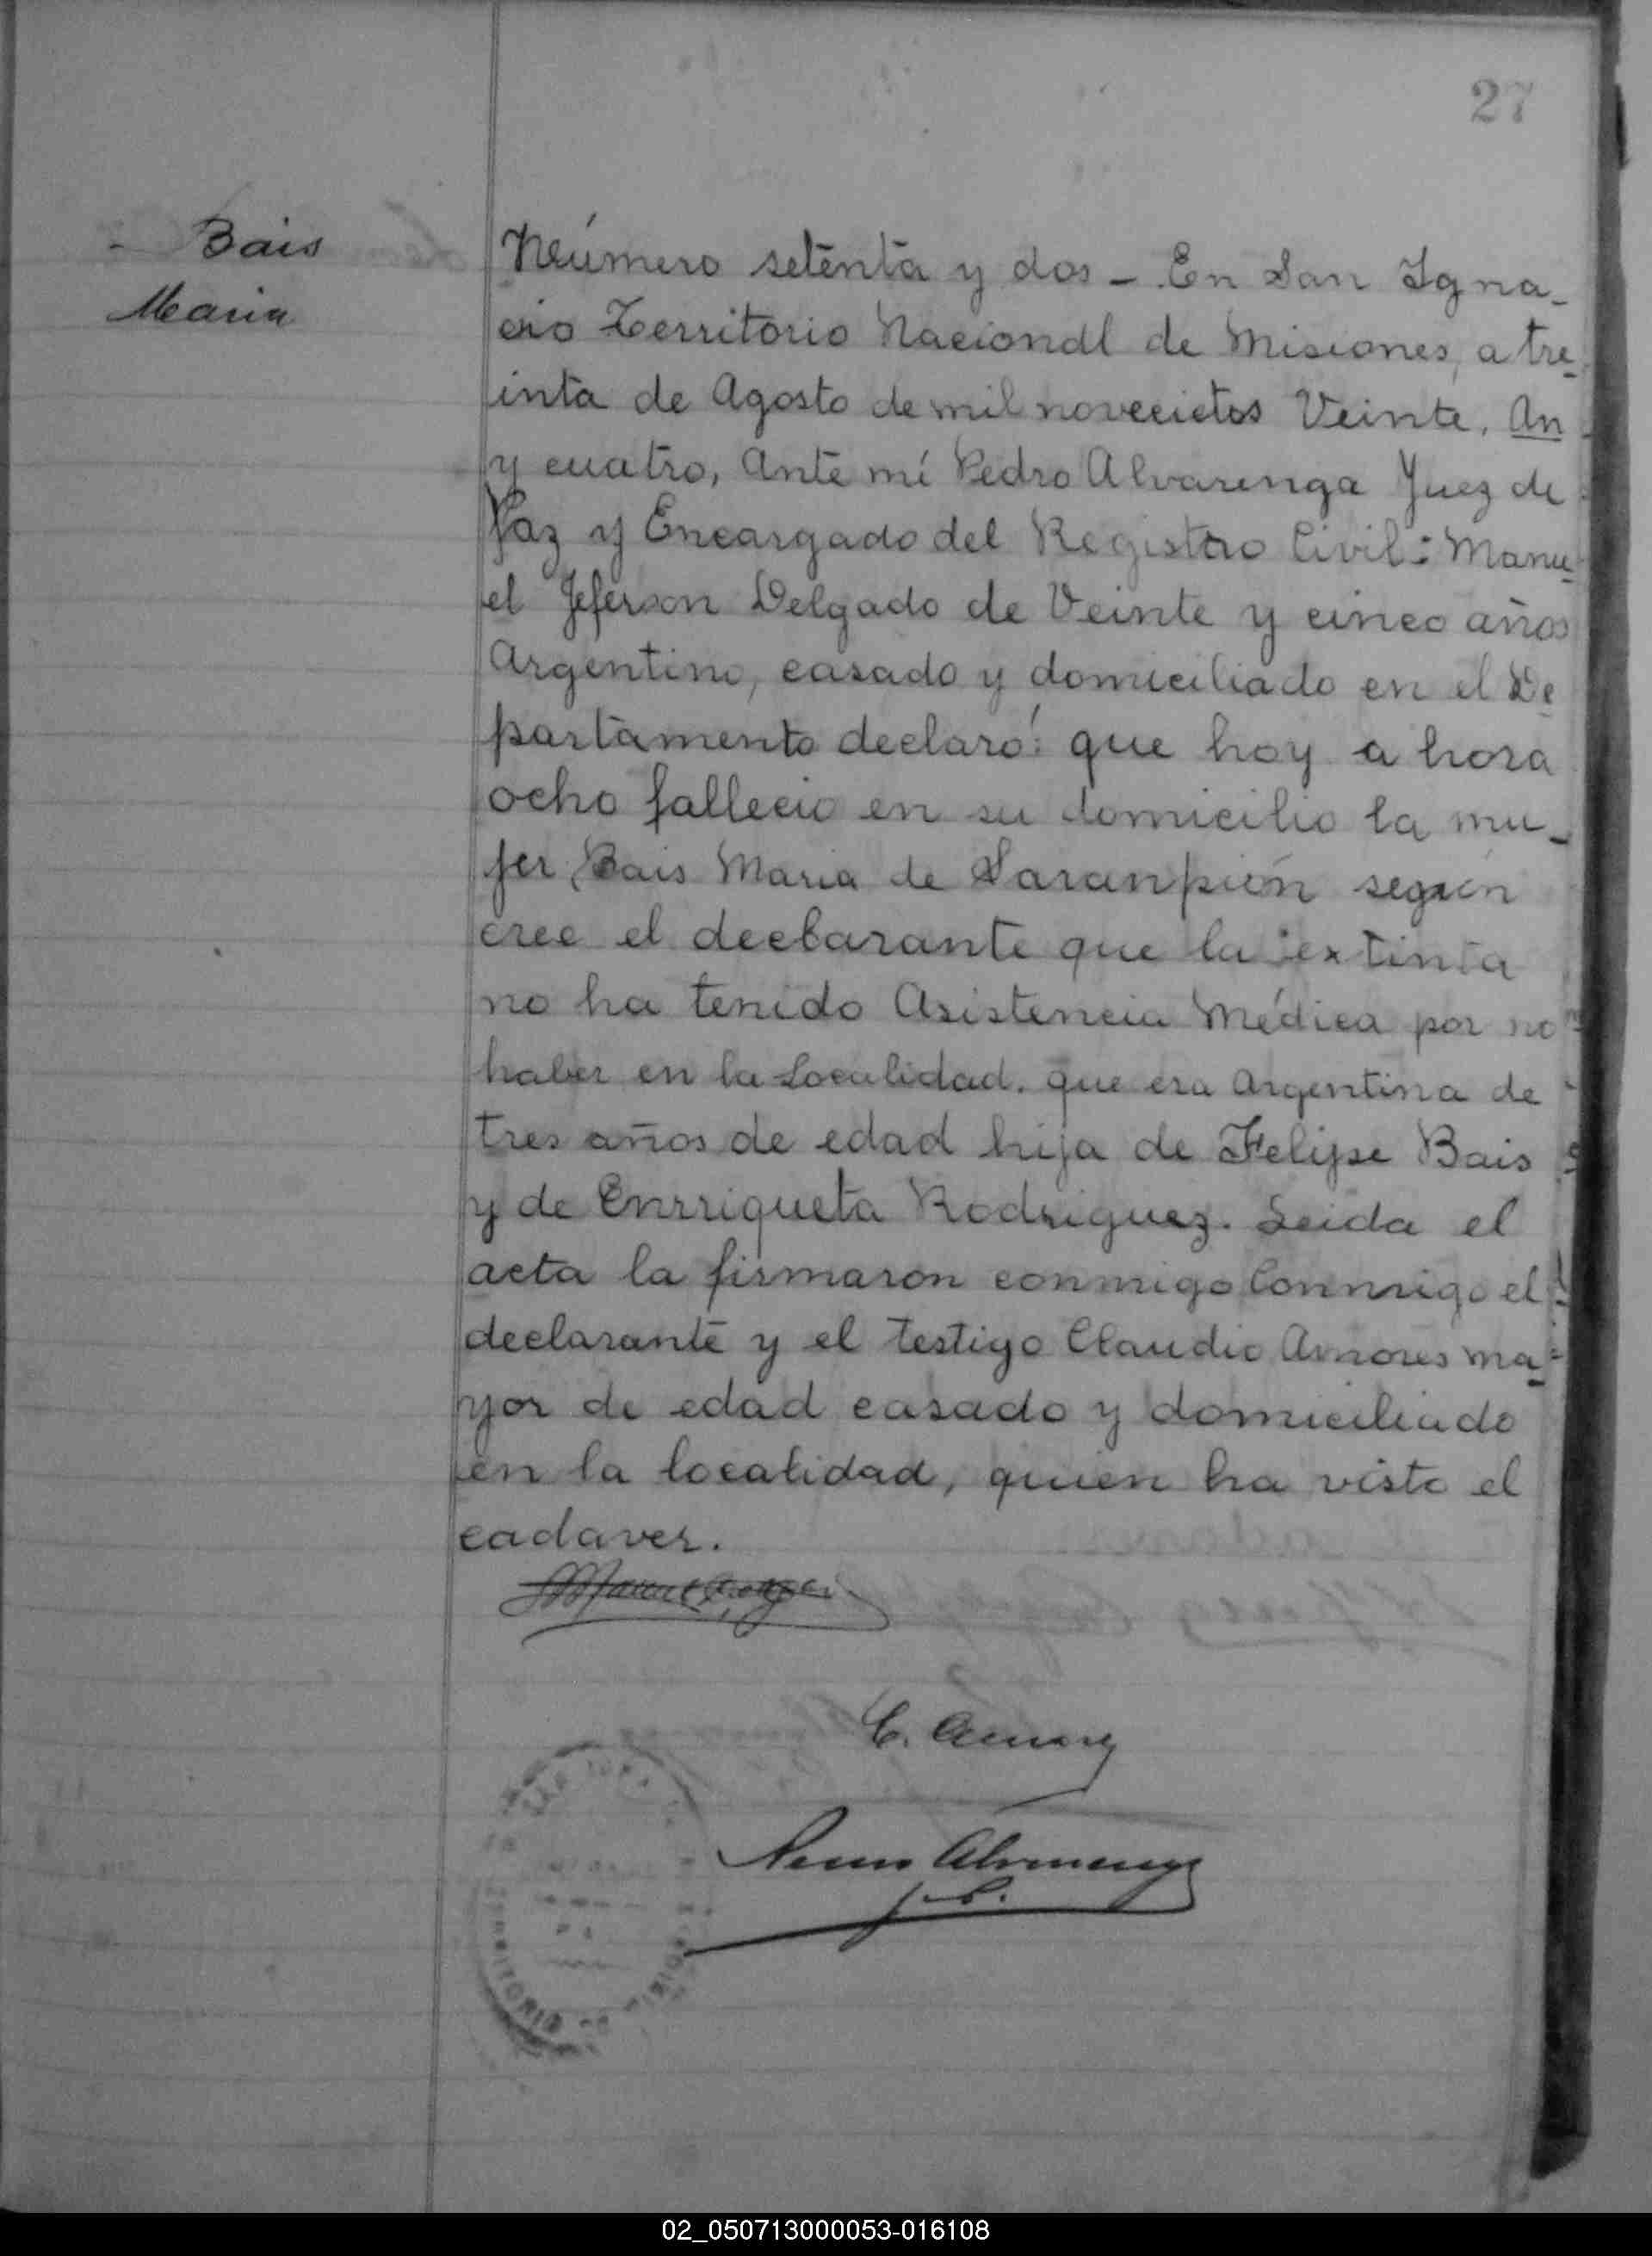 27
Bais
Maria
Número setenta y dos - En San Igna-
cio Territorio Nacional de Misiones, a tre
inta de Agosto de mil novecietos Veinte. An
y cuatro, Ante mí Pedro Alvarenga Juez de
Paz y Encargado del Registro Civil: Manu
el Jeferson Delgado de Veinte y cinco años
Argentino, casado y domiciliado en el De
partamento declaró: que hoy a hora
ocho fallecio en su domicilio la mu-
jer Bais Maria de Saranpión según
cree el declarante que la extinta
no ha tenido Asistencia Médica por no
haber en la Localidad. que era Argentina de
tres años de edad hija de Felipe Bais
y de Enrriqueta Rodriguez. Leida el
acta la firmaron conmigo Conmigo el
declarante y el testigo Claudio Amores ma
yor de edad casado y domiciliado
en la localidad, quien ha visto el
cadaver.
C. Amores
Alvarenga
J. P.
TERRITORIO
02_050713000053-016108